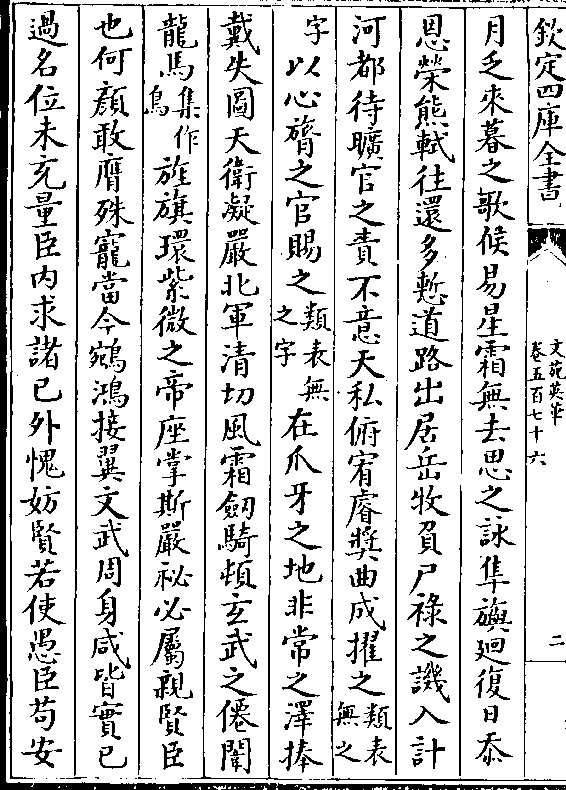 欽定四庫全書
文苑英華
卷五百七十六
二
月乏來暮之歌候易星霜無去思之詠隼旟廻復日忝
恩榮熊軾往還多慙道路出居岳牧負尸祿之譏入計
河都待曠官之責不意天私俯宥睿奬曲成擢之類表無之
字以心膂之官賜之類表無之字在爪牙之地非常之澤捧
戴失圖天衛凝嚴北軍清切風霜劒騎頓玄武之僊闈
龍馬集作鳥旌旗環紫微之帝座掌斯嚴祕必屬親賢臣
也何顔敢膺殊寵當今鵷鴻接翼文武周身咸皆實已
過名位未充量臣内求諸已外愧妨賢若使愚臣苟安